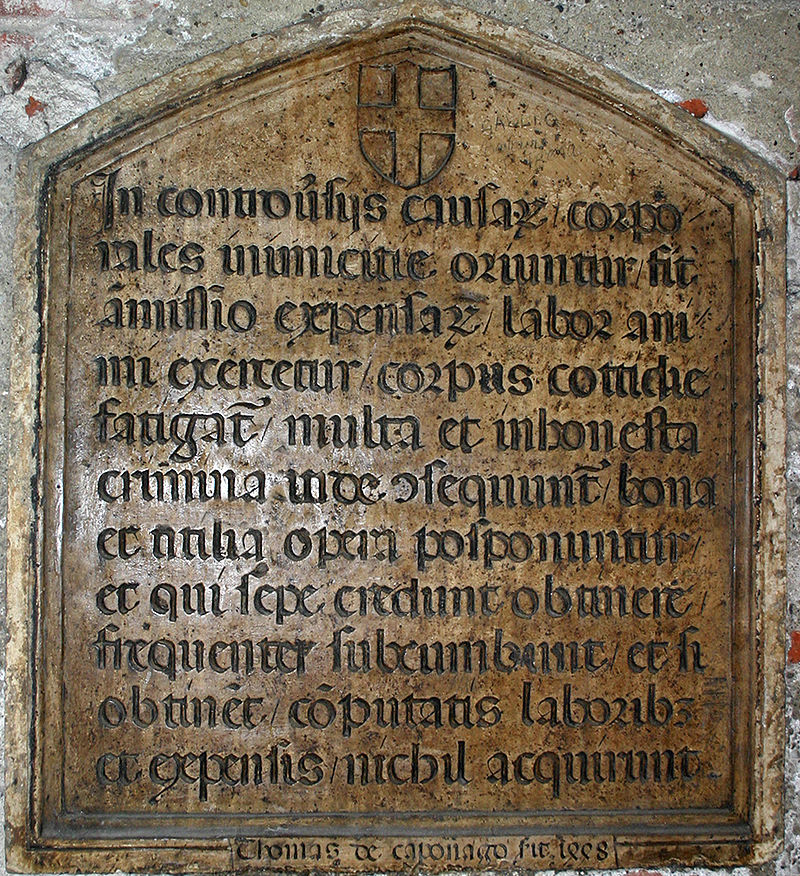 GALLIO
In controũsijs causaꝝ / corpo
rales inimicitie oriuntur / fit
ãmissio expensaꝝ / labor ani
mi exercetur / corpus cottidie
fatigat̃ / multa et inhonesta
crimina inde ↄsequunt̃ / bona
et utilia opera posponuntur /
et qui sepe credunt obtinere /
frequenter subcumbunt / et si
obtinẽt / cõputatis laboribꝫ
et expensis / nichil acquirunt
Thomas de caponago fit 1448